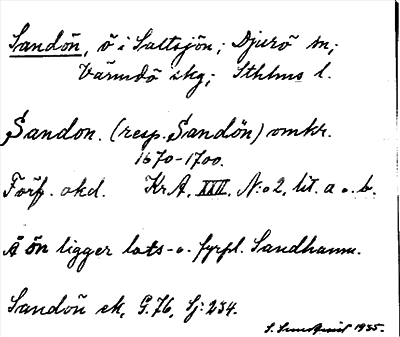 Sandön, ö i Saltsjön; Djurö sn;
Värmdö skg; Sthlms l.
Sandon. (resp. Sandön) omkr.
1670-1700.
Förf. okd. Kr A. XXII. N:o 2, lit. a o. b.
Å ön ligger lots- o. fyrpl. Sandhamn.
Sandön sk, G.76, Sj: 234.
1935.